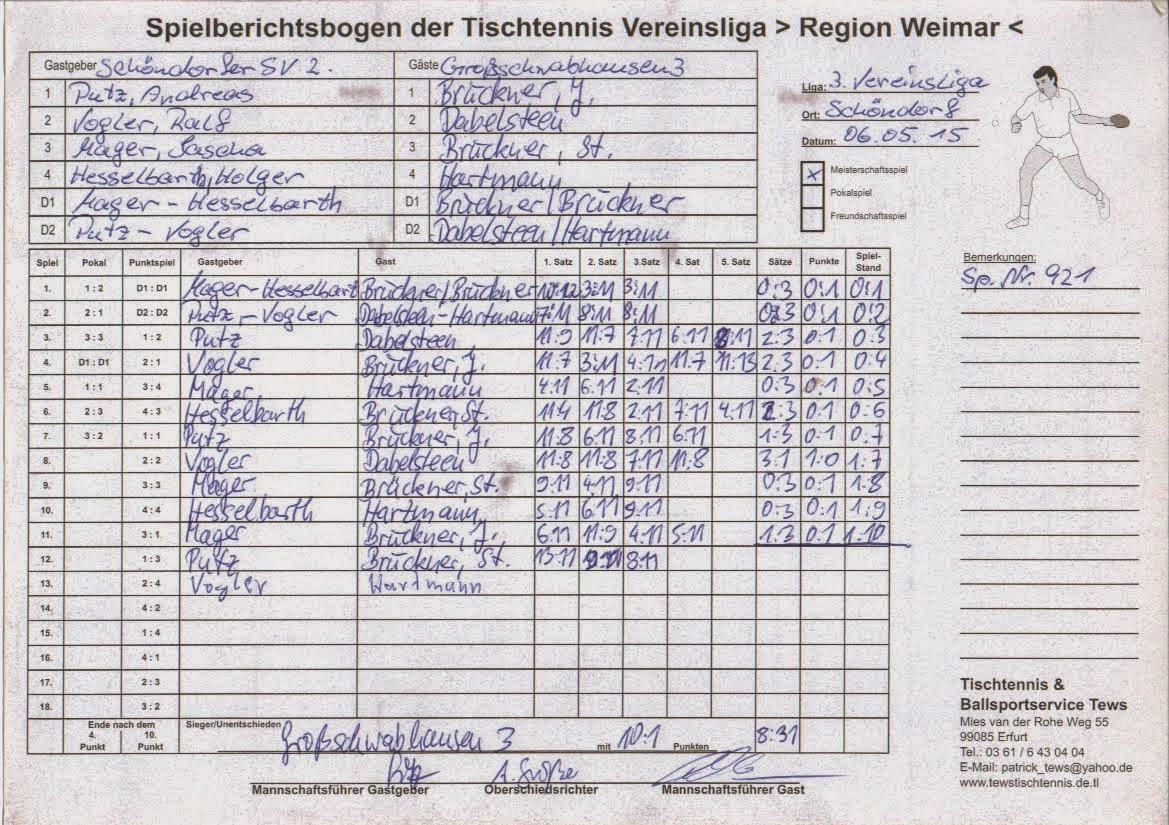 Spielberichtsbogen der Tischtennis Vereinsliga > Region Weimar <
Gastgeber Schöndorfer SV 2. Gäste Großschwabhausen 3
1 Putz, Andreas 1 Brückner, J.
2 Vogler, Ralf 2 Dabelsteen
3 Mager, Sascha 3 Brückner, St.
4 Hesselbarth, Holger 4 Hartmann
D1 Mager - Hesselbarth D1 Brückner/Brückner
D2 Putz - Vogler D2 Dabelsteen/Hartmann
Liga: 3. Vereinsliga
Ort: Schöndorf
Datum: 06.05.15
x Meisterschaftsspiel
Pokalspiel
Freundschaftsspiel
Bemerkungen:
Sp. Nr. 921
Spiel Pokal Punktspiel Gastgeber Gast 1. Satz 2. Satz 3.Satz 4. Sat 5. Satz Sätze Punkte Spiel-Stand
1. 1 : 2 D1 : D1 Mager-Hesselbart Brückner/Brückner 10:12 3:11 3:11 0:3 0:1 0:1
2. 2 : 1 D2 : D2 Putz - Vogler Dabelsteen-Hartmann 7:11 8:11 8:11 0:3 0:1 0:2
3. 3 : 3 1 : 2 Putz Dabelsteen 11:9 11:7 7:11 6:11 8:11 2:3 0:1 0:3
4. D1 : D1 2 : 1 Vogler Brückner, J. 11:7 3:11 4:11 11:7 11:13 2:3 0:1 0:4
5. 1 : 1 3 : 4 Mager Hartmann 4:11 6:11 2:11 0:3 0:1 0:5
6. 2 : 3 4 : 3 Hesselbarth Brückner St. 11:4 11:8 2:11 7:11 4:11 2:3 0:1 0:6
7. 3 : 2 1 : 1 Putz Brückner, J. 11:8 6:11 8:11 6:11 1:3 0:1 0:7
8. 2 : 2 Vogler Dabelsteen 11:8 11:8 7:11 11:8 3:1 1:0 1:7
9. 3 : 3 Mager Brückner, St. 9:11 4:11 9:11 0:3 0:1 1:8
10. 4 : 4 Hesselbarth Hartmann 5:11 6:11 9:11 0:3 0:1 1:9
11. 3 : 1 Mager Brückner, J. 6:11 11:9 4:11 5:11 1:3 0:1 1:10
12. 1 : 3 Putz Brückner, St. 13:11 9:11 8:11
13. 2 : 4 Vogler Hartmann
14. 4 : 2
15. 1 : 4
16. 4 : 1
17. 2 : 3
18. 3 : 2
Ende nach dem
4. Punkt 10. Punkt
Sieger/Unentschieden Großschwabhausen 3 mit 10:1 Punkten 8:31
Mannschaftsführer Gastgeber Oberschiedsrichter Mannschaftsführer Gast
Tischtennis &
Ballsportservice Tews
Mies van der Rohe Weg 55
99085 Erfurt
Tel.: 03 61 / 6 43 04 04
E-Mail: patrick_tews@yahoo.de
www.tewstischtennis.de.tl